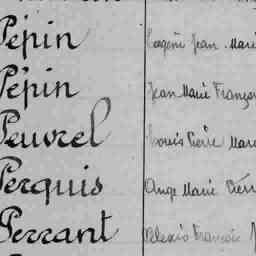 Pépin Eugène Jean Marie
Pépin Jean Marie França
Peuvrel Louis Pierre Marie
Perquis Ange Marie Pierr
Perrant Alexis François